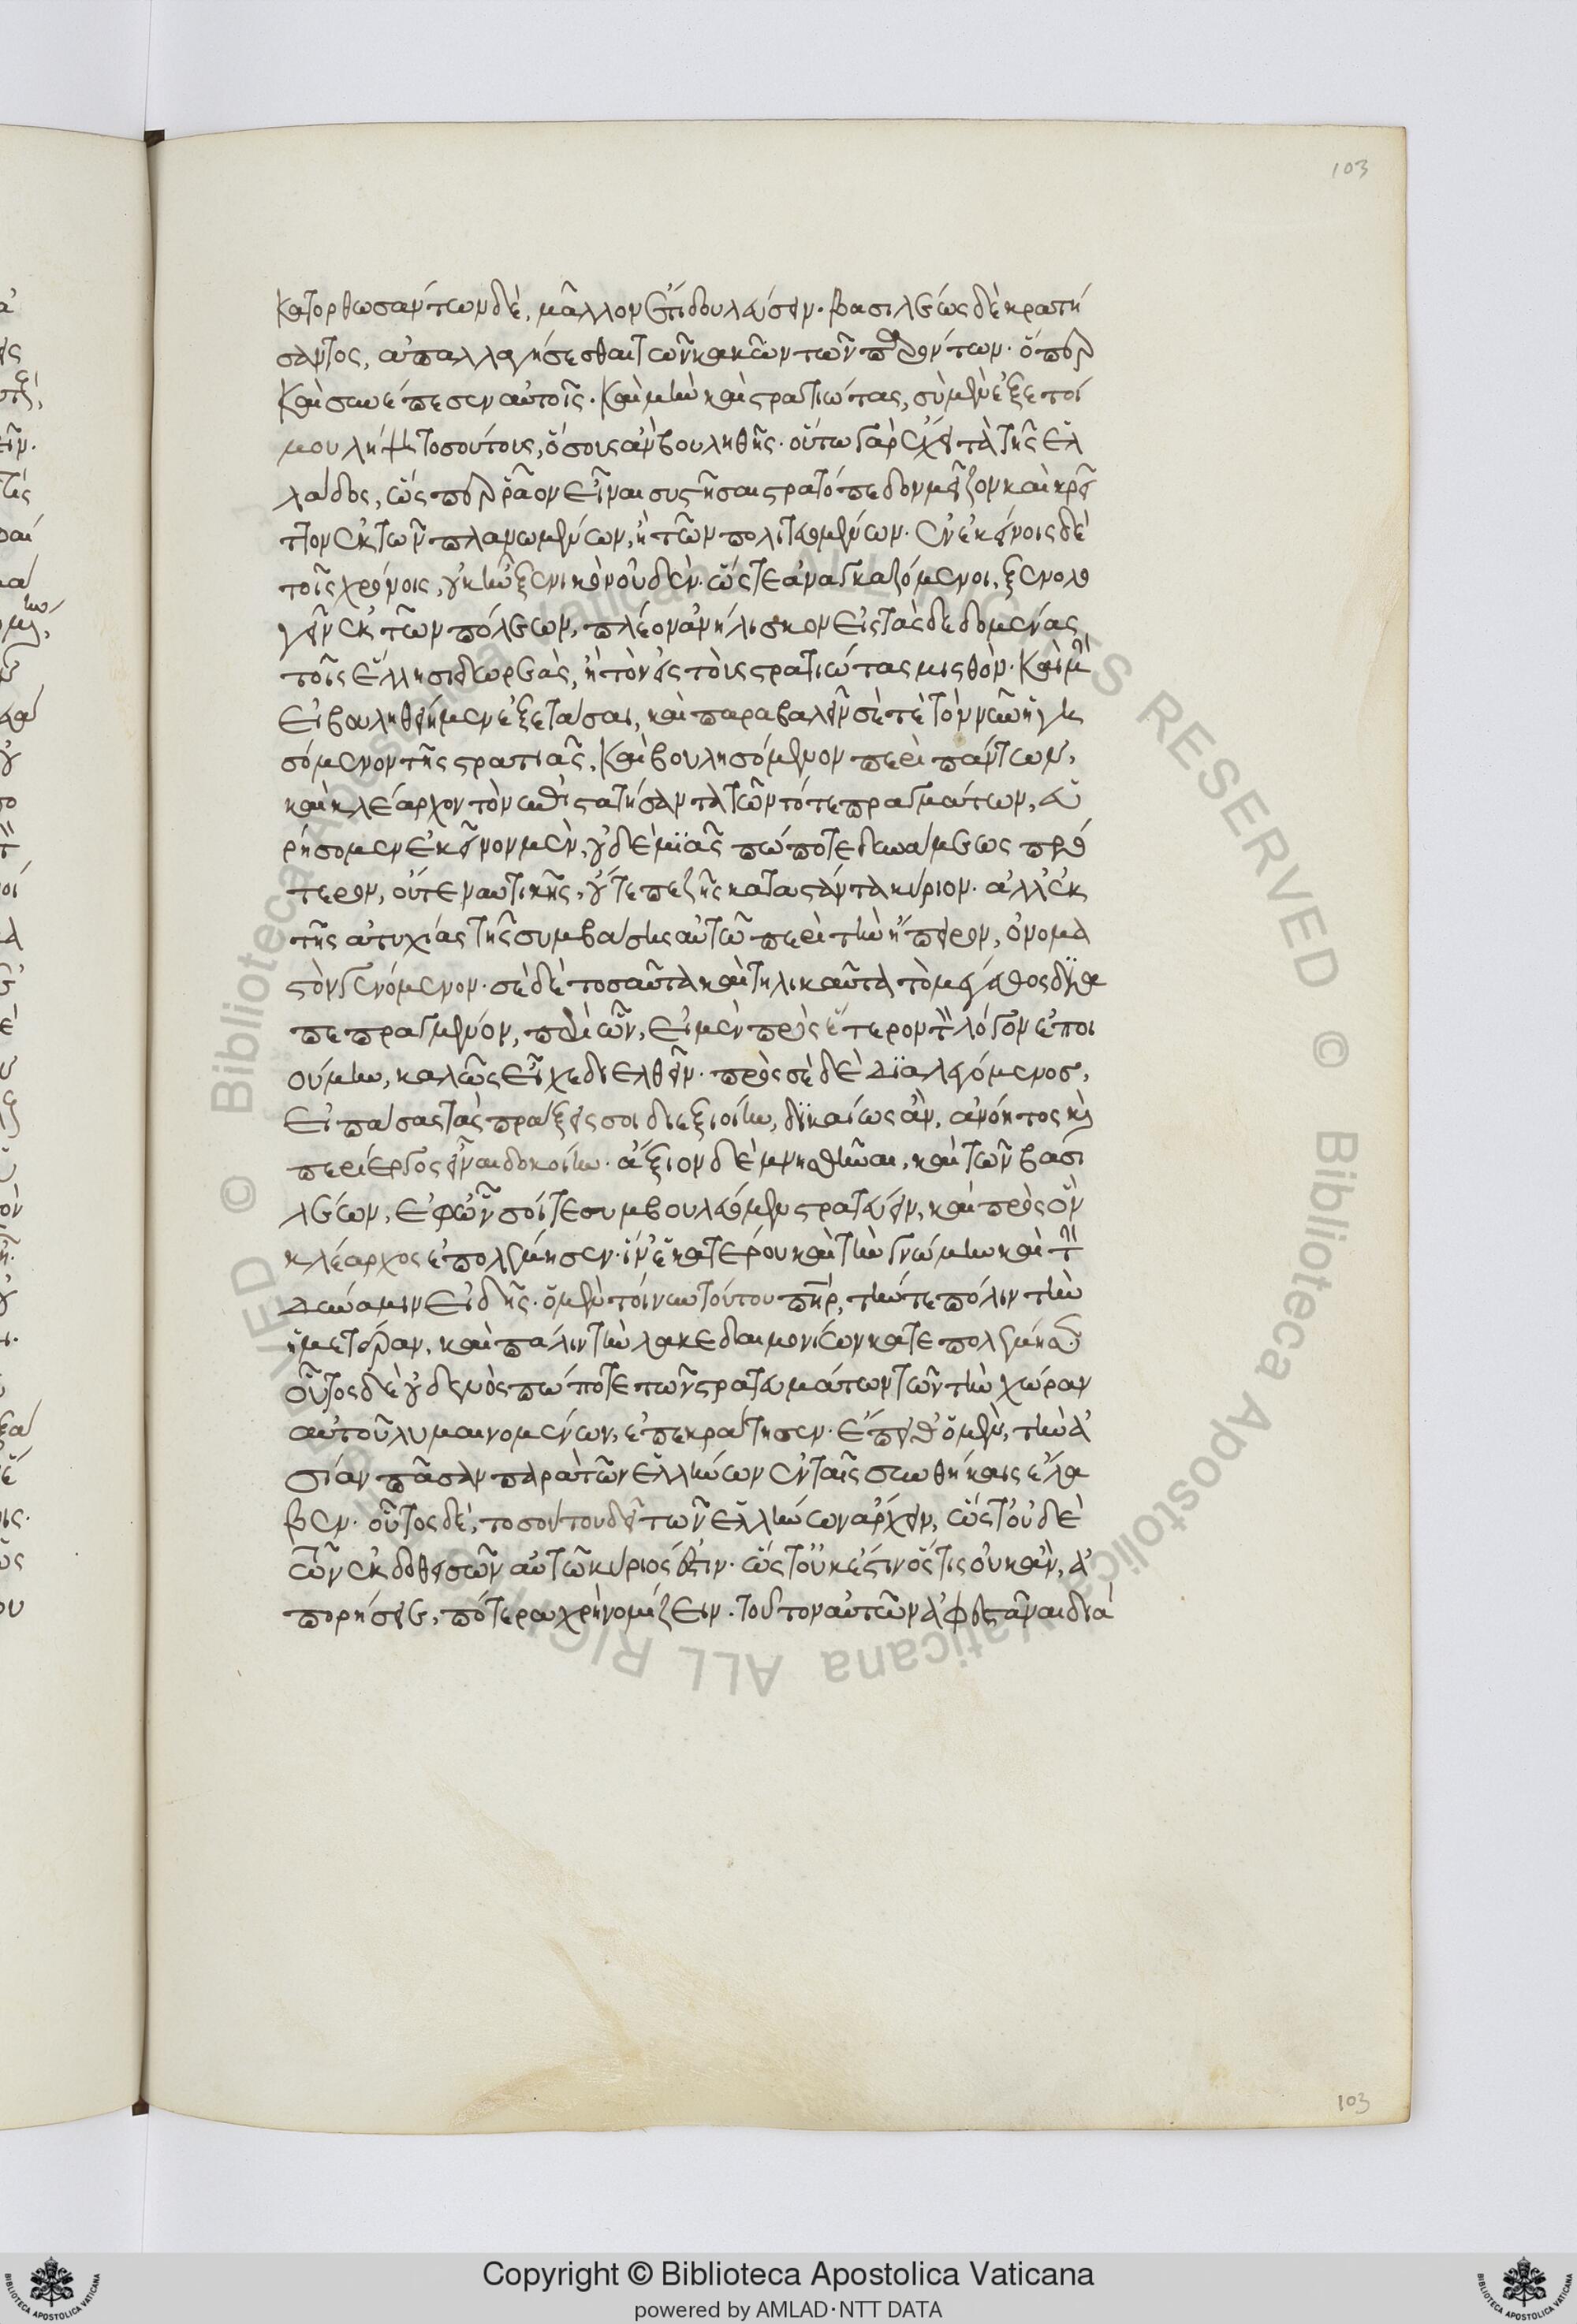 103
κατορθωσάντων δὲ, μᾶλλον ἔτι δουλεύσειν. βασιλέως δὲ κρατή
σαντος, ἀπαλλαγήσεσθαι τῶν κακῶν τῶν παρόντων. ὅπερ
καὶ συνέπεσεν αὐτοῖς. καὶ μὴν καὶ στρατιώτας, σὺ μὲν ἐξ ἑτοί
μου λήψη τοσούτους, ὅσους ἂν βουληθῆς. οὕτω γὰρ ἔχει τὰ τῆς ἑλ
λάδος, ὥς περ ῥᾶον εἶναι συστῆσαι στρατόπεδον μεῖζον καὶ κρεῖ
ττον ἐκ τῶν πλανωμένων, ἢ τῶν πολιτευομένων. ἐν ἐκείνοις δὲ
τοῖς χρόνοις, οὐκ ἦν ξενικὸν οὐδέν. ὥς τε ἀναγκαζόμενοι, ξενολο
γεῖν ἐκ τῶν πόλεων, πλέον ἀνήλισκον εἰς τὰς δεδομένας
τοῖς ἕλλησι δωρεὰς, ἢ τὸν εἰς τοὺς στρατιώτας μισθόν. καὶ μὴν
εἰ βουληθείημεν ἐξετάσαι, καὶ παραβαλεῖν σέ τε τὸν νῦν ἡγη
σόμενον τῆς στρατιᾶς, καὶ βουλησόμενον περὶ πάντων,
καὶ κλέαρχον τὸν ἐπιστατήσαντα τῶν τότε πραγμάτων, εὑ
ρήσομεν ἐκεῖνον μὲν, οὐδεμιᾶς πώποτε δυνάμεως πρό
τερον, οὔτε ναυτικῆς, οὔτε πεζῆς καταστάντα κύριον. ἀλλ' ἐκ
τῆς ἀτυχίας τῆς συμβάσης αὐτῶ περὶ τὴν ἤπειρον, ὀνομα
στὸν γενόμενον. σὲ δὲ τοσαῦτα καὶ τηλικαῦτα τὸ μέγεθος δϊα
πεπραγμένον, περὶ ὧν, εἰ μὲν πρὸς ἕτερον τὸν λόγον ἐποι
ούμην, καλῶς εἶχε διελθεῖν. πρὸς σὲ δὲ διαλεγόμενος,
εἰ πάσας τὰς πράξεις σοι διεξιοίην, δϊκαίως ἂν, ἀνόητος καὶ
περίεργος εἶναι δοκοίην. ἄξιον δὲ μνησθῆναι, καὶ τῶν βασι
λέων, ἐφ' ὧν σοί τε συμβουλεύομεν στρατεύειν, καὶ πρὸς ὃν
κλέαρχος ἐπολέμησεν. ἵν' ἑκατέρου καὶ τὴν γνώμην καὶ τὴν
δύναμιν εἰδῆς. ὁ μὲν τοίνυν τούτου πατὴρ, τήν τε πόλιν τὴν
ἡμετέραν, καὶ πάλιν τὴν λακεδαιμονίων κατεπολέμησεν.
οὗτος δὲ οὐδενὸς πώποτε τῶν στρατευμάτων τῶν τὴν χώραν
αὐτοῦ λυμαινομένων, ἐπεκράτησεν. ἔπειθ' ὁ μὲν, τὴν ἀ
σίαν πᾶσαν παρὰ τῶν ἑλλήνων ἐν ταῖς συνθήκαις ἔλα
βεν. οὗτος δὲ, τοσούτου δεῖ τῶν ἑλλήνων ἄρχειν, ὥς τ' οὐδὲ
τῶν ἐκδοθεισῶν αὐτῶ κύριός ἐστιν. ὥς τ' οὐκ ἔστιν ὅς τις οὐκ ἂν, ἀ
πορήσειε, πότερα χρὴ νομίζειν. τοῦτον αὐτῶν ἀφεστᾶναι διὰ
103